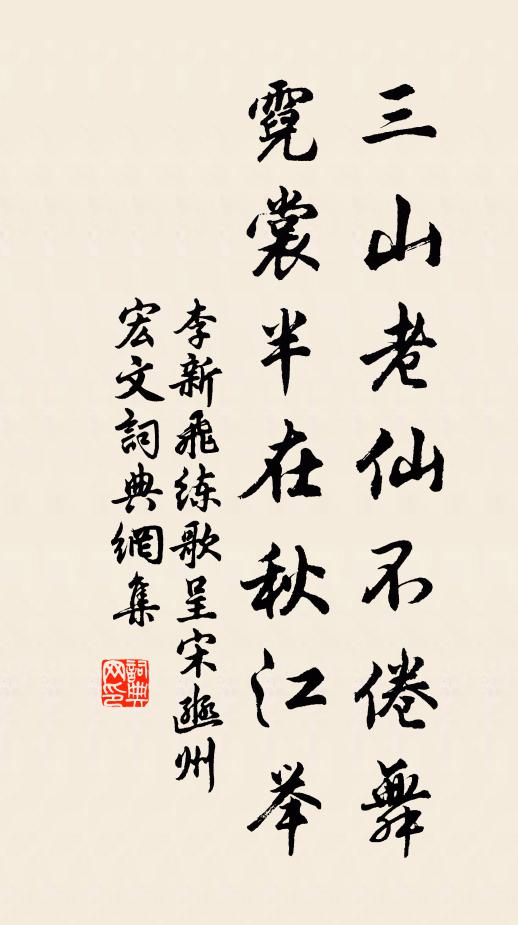 三山老仙不倦舞
霓裳半在秋江举
李新飛练歌呈宋遜州
宏文詞典網集
詞典
网印